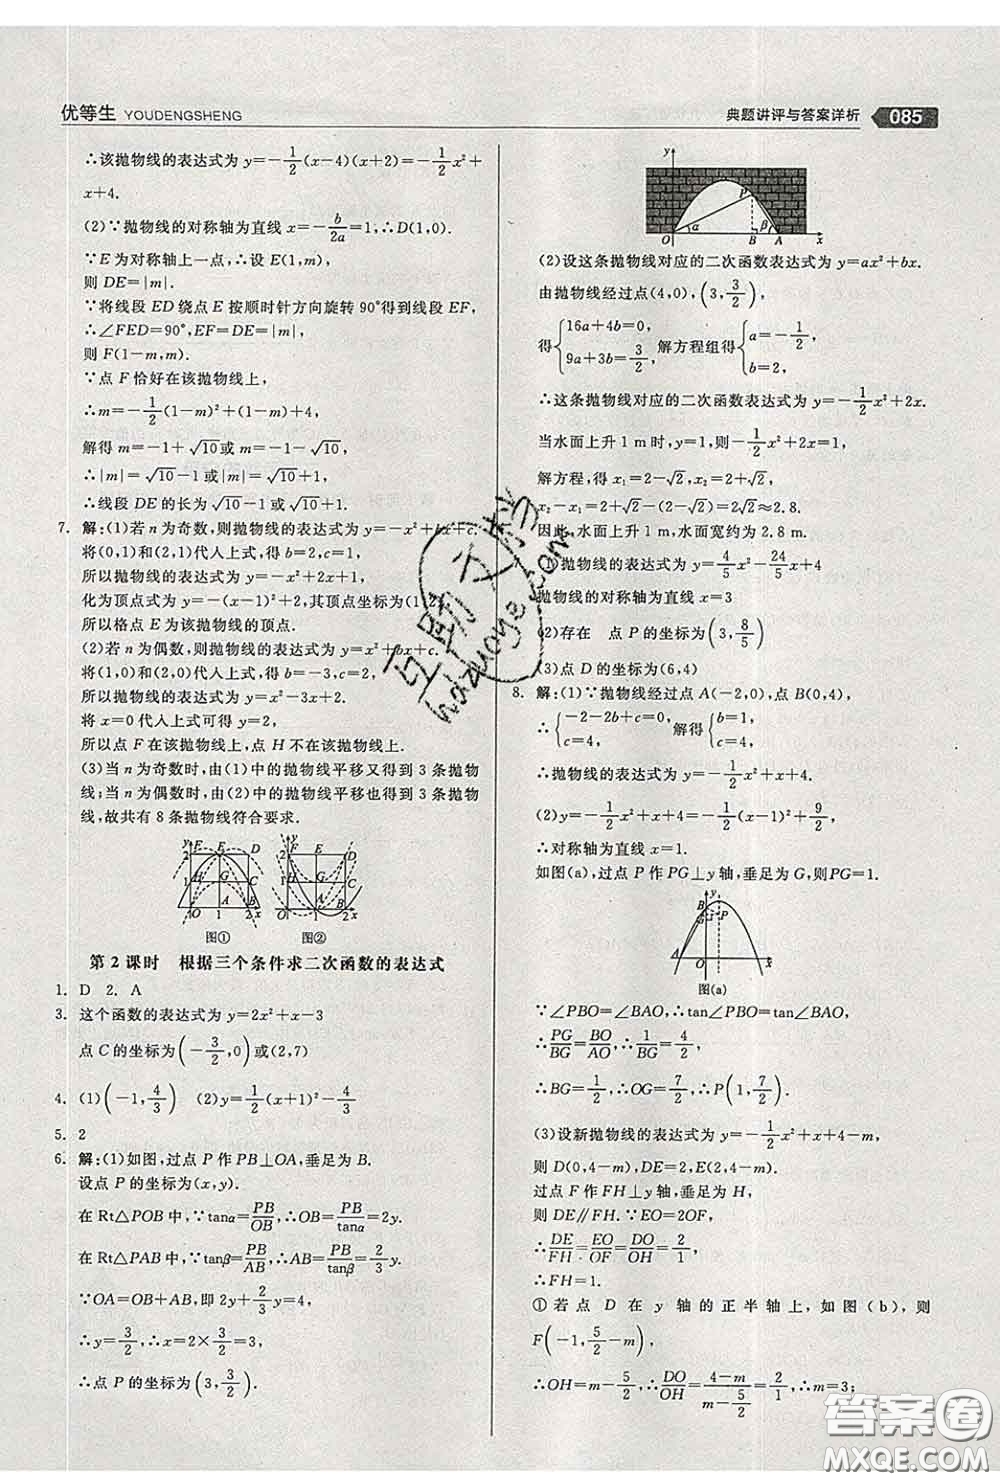 优等生 YOUDENGSHENG
典题讲评与答案详析 085
∴该抛物线的表达式为 y=-1/2(x-4)(x+2)=-1/2x²+
x+4.
(2)∵抛物线的对称轴为直线 x=-b/2a=1,∴D(1,0).
∵E 为对称轴上一点,∴设 E(1,m),
则 DE=|m|.
∵将线段 ED 绕点 E 按顺时针方向旋转 90°得到线段 EF,
∴∠FED=90°,EF=DE=|m|,
则 F(1-m,m).
∵点 F 恰好在该抛物线上,
∴m=-1/2(1-m)²+(1-m)+4,
解得 m=-1+√10或 m=-1-√10,
∴|m|=√10-1或√10+1,
∴线段 DE 的长为√10-1或√10+1.
7. 解:(1)若 n 为奇数,则抛物线的表达式为 y=-x²+bx+c.
将(0,1)和(2,1)代入上式,得 b=2,c=1,
所以抛物线的表达式为 y=-x²+2x+1,
化为顶点式为 y=-(x-1)²+2,其顶点坐标为(1,2),
所以格点 E 为该抛物线的顶点.
(2)若 n 为偶数,则抛物线的表达式为 y=x²+bx+c.
将(1,0)和(2,0)代入上式,得 b=-3,c=2,
所以抛物线的表达式为 y=x²-3x+2.
将 x=0 代入上式可得 y=2,
所以点 F 在该抛物线上,点 H 不在该抛物线上.
(3)当 n 为奇数时,由(1)中的抛物线平移又得到 3 条抛物
线;当 n 为偶数时,由(2)中的抛物线平移也得到 3 条抛物
线,故共有 8 条抛物线符合要求.
y F E D 2 H G C 1 O 1 A B 2 x
图①
y F E D 2 H G C 1 O 1 A B 2 x
图②
第 2 课时 根据三个条件求二次函数的表达式
1. D 2. A
3. 这个函数的表达式为 y=2x²+x-3
点 C 的坐标为(-3/2,0)或(2,7)
4. (1)(-1,4/3) (2)y=1/2(x+1)²-4/3
5. 2
6. 解:(1)如图,过点 P 作 PB⊥OA,垂足为 B.
设点 P 的坐标为(x,y).
在 Rt△POB 中,∵tanα=PB/OB,∴OB=PB/tanα=2y.
在 Rt△PAB 中,∵tanβ=PB/AB,∴AB=PB/tanβ=2/3y.
∵OA=OB+AB,即 2y+2/3y=4,
∴y=3/2,∴x=2×3/2=3,
∴点 P 的坐标为(3,3/2).
y P α β O B A x
(2)设这条抛物线对应的二次函数表达式为 y=ax²+bx.
由抛物线经过点(4,0),(3,3/2),
得{16a+4b=0, 9a+3b=3/2, 解方程组得{a=-1/2, b=2,
∴这条抛物线对应的二次函数表达式为 y=-1/2x²+2x.
当水面上升 1 m 时,y=1,即-1/2x²+2x=1,
解方程,得 x₁=2-√2,x₂=2+√2,
x₂-x₁=2+√2-(2-√2)=2√2≈2.8.
因此,水面上升 1 m,水面宽约为 2.8 m.
(1)抛物线的表达式为 y=4/5x²-24/5x+4
抛物线的对称轴为直线 x=3
(2)存在 点 P 的坐标为(3,8/5)
(3)点 D 的坐标为(6,4)
8. 解:(1)∵抛物线经过点 A(-2,0),点 B(0,4),
∴{-2-2b+c=0, c=4, 解得{b=1, c=4,
∴抛物线的表达式为 y=-1/2x²+x+4.
(2)y=-1/2x²+x+4=-1/2(x-1)²+9/2,
∴对称轴为直线 x=1.
如图(a),过点 P 作 PG⊥y 轴,垂足为 G,则PG=1.
y B G P A O x
图(a)
∵∠PBO=∠BAO,∴tan∠PBO=tan∠BAO,
∴PG/BG=BO/AO,∴1/BG=4/2,
∴BG=1/2,∴OG=7/2,∴P(1,7/2).
(3)设新抛物线的表达式为 y=-1/2x²+x+4-m,
则 D(0,4-m),DE=2,E(2,4-m).
过点 F 作 FH⊥y 轴,垂足为 H,
则 DE∥FH.∵EO=2OF,
∴DE/FH=EO/OF=DO/OH=2/1,
∴FH=1.
①若点 D 在 y 轴的正半轴上,如图(b),则
F(-1,5/2-m),
∴OH=m-5/2,∴DO/OH=4-m/m-5/2=2/1,∴m=3;
互助文学
hdzuoye.com
答案圈
MXQE.COM